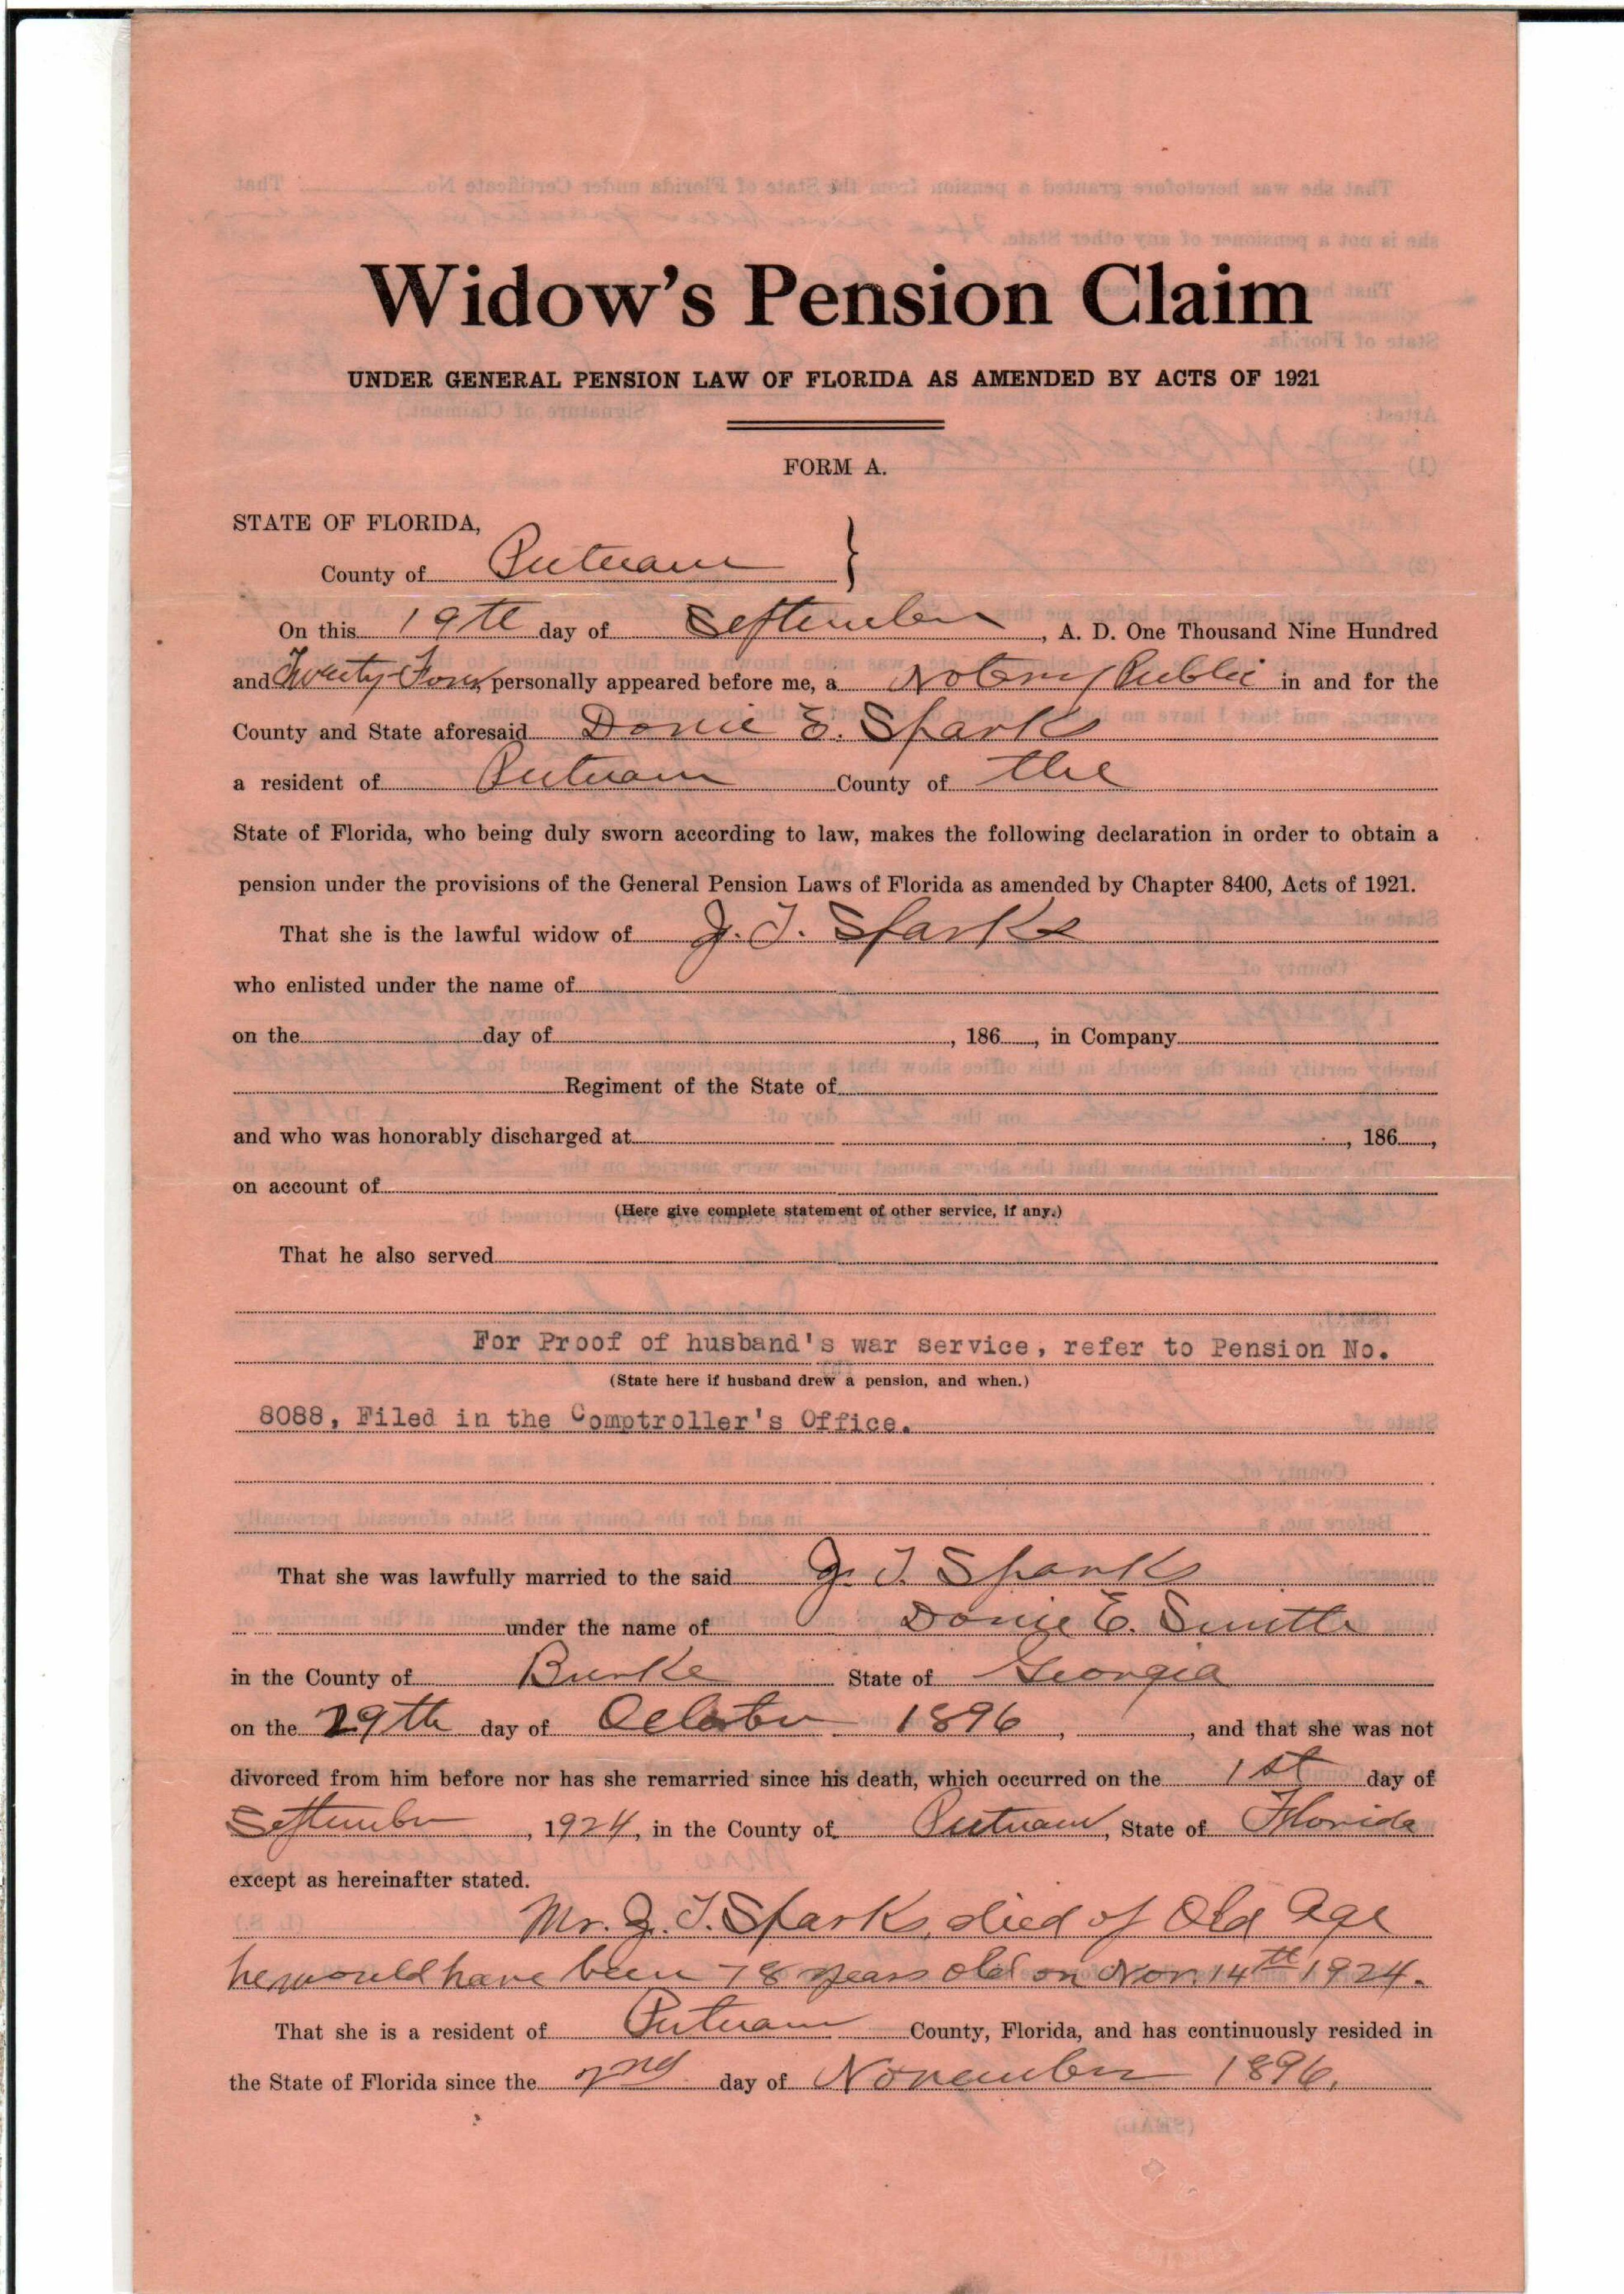 Widow's Pension Claim
UNDER GENERAL PENSION LAW OF FLORIDA AS AMENDED BY ACTS OF 1921
FORM A.
STATE OF FLORIDA,
County of Putnam }
On this 19th day of September, A. D. One Thousand Nine Hundred
and Twenty-Four, personally appeared before me, a Notary Public in and for the
County and State aforesaid Donie E. Sparks
a resident of Putnam County of the
State of Florida, who being duly sworn according to law, makes the following declaration in order to obtain a
pension under the provisions of the General Pension Laws of Florida as amended by Chapter 8400, Acts of 1921.
That she is the lawful widow of J. T. Sparks
who enlisted under the name of
on the day of , 186 , in Company
Regiment of the State of
and who was honorably discharged at , 186 ,
on account of
(Here give complete statement of other service, if any.)
That he also served
For Proof of husband's war service, refer to Pension No.
(State here if husband drew a pension, and when.)
8088, Filed in the Comptroller's Office.
That she was lawfully married to the said J. T. Sparks
under the name of Donie E. Smith
in the County of Burke State of Georgia
on the 29th day of October 1896, , and that she was not
divorced from him before nor has she remarried since his death, which occurred on the 1st day of
September, 1924, in the County of Putnam, State of Florida
except as hereinafter stated.
Mr. J. T. Sparks, died of Old Age
he would have been 78 years old on Nov 14th 1924.
That she is a resident of Putnam County, Florida, and has continuously resided in
the State of Florida since the 2nd day of November 1896.